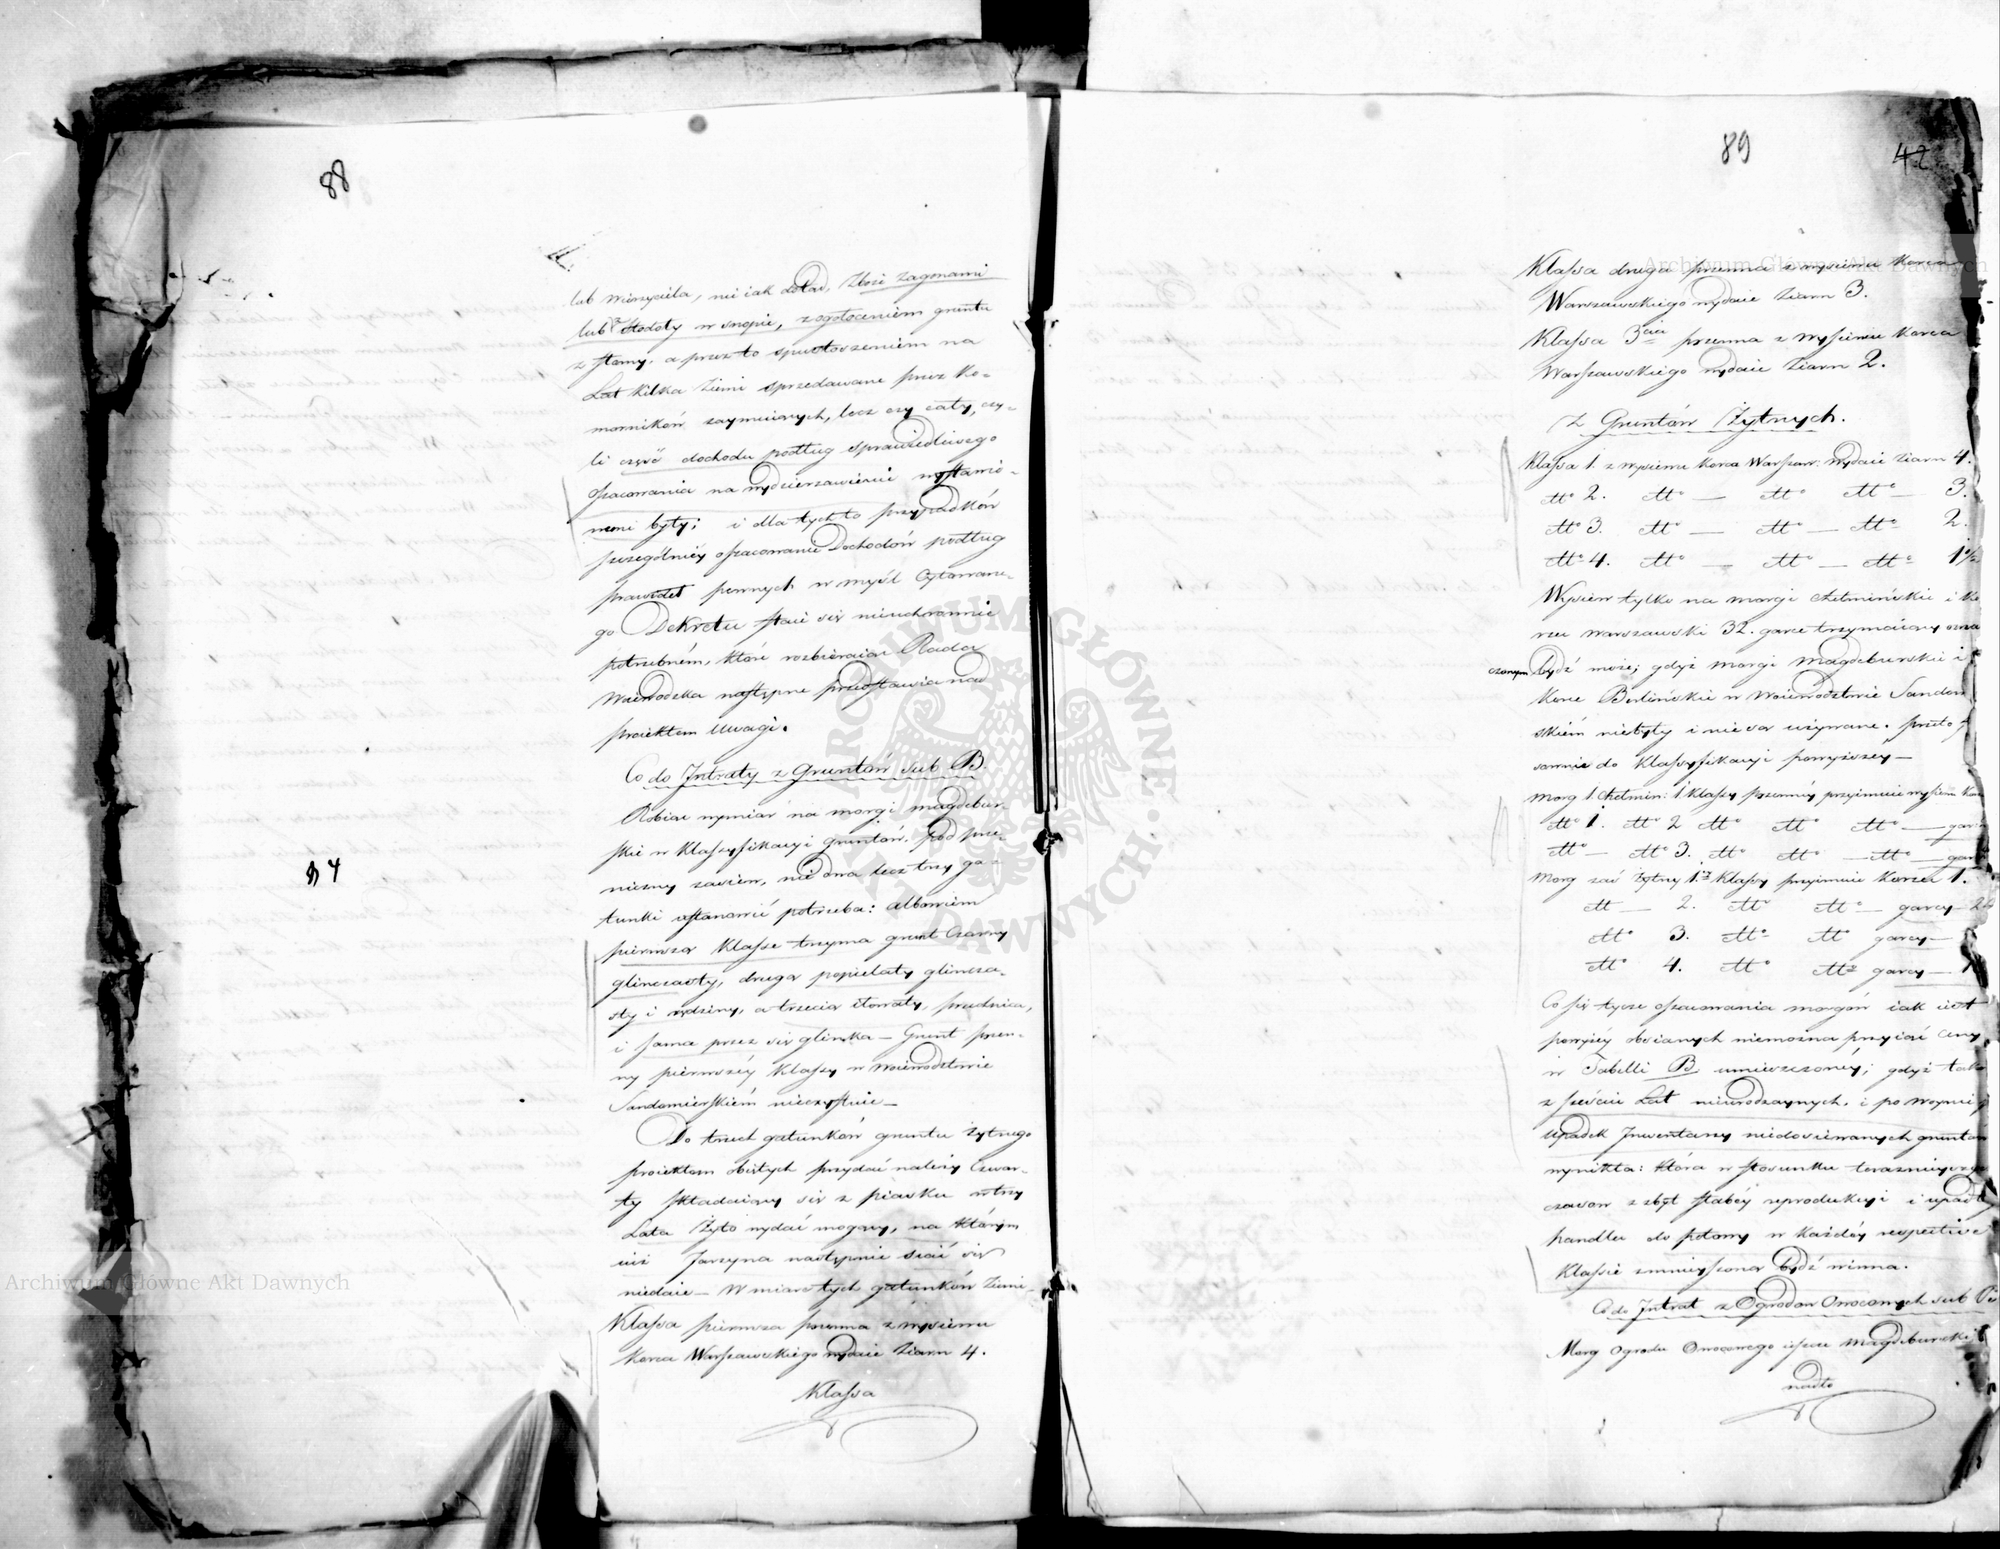 88
lub wierzyciela, nie iak dotąd, Zboże zagonami
lub z Stodoły w snopie, z ogołoceniem gruntu
z słomy, a przez to spustoszeniem na
Lat kilka ziemi sprzedawane przez Ko-
morników zaymuiących, lecz czy cały, czy-
li część dochodu podług sprawiedliwego
oszacowania na wydzierżawienie wystawio-
nemi były; i dla tych to przypadków
szczególniéy oszacowanie Dochodów podług
prawideł pewnych w myśl Cytowane-
go Dekretu staie się nieuchronnie
potrzebném, które rozbieraiąc Rada
Woiewódzka następne przedstawia nad
proiektem uwagi.
Co do Intraty z Gruntów sub B.
Robiąc wymiar na morgi magdebur-
skie w klassyfikacyi gruntów. Pod psze-
niczny zasiew, nie dwa lecz trzy ga-
tunki ustanowić potrzeba: albowiem
pierwszą Klassę trzyma grunt Czarny
glinczasty, drugą popielaty glincza-
sty i rędziny, a trzecią iłowaty,
i sama przez się glinka — Grunt pszen-
ny pierwszéy Klassy w Woiewództwie
Sandomierskiém nieexystuie —
Do trzech gatunków gruntu Żytnego
proiektem obiętych przydać należy Czwar-
ty składaiący się z piasku w trzy
Lata Żyto wydać mogący, na którym
iuż Jarzyna następnie siać się
niedaie — W miarę tych gatunków Ziemi
Klassa pierwsza pszenna z wysiewu
Korca Warszawskiego wydaie Ziarn 4.
Klassa
§ 4
89
42
Klassa druga pszenna z wysiewu Korca
Warszawskiego wydaie Ziarn 3.
Klassa 3cia pszenna z wysiewu Korca
Warszawskiego wydaie Ziarn 2.
Z Gruntów Żytnych.
Klassa 1. z wysiewu Korca Warszaw: wydaie Ziarn 4.
dtto 2. dtto — dtto dtto — 3.
dtto 3. dtto — dtto — dtto 2.
dtto 4. dtto — dtto — dtto 1½
Wysiew tylko na morgi chełmińskie i Ko
rzec warszawski 32. garce trzymaiący ozna
czonym bydź może; gdyż morgi Magdeburskie i
Korce Berlińskie w Woiewództwie Sandomir
skiém niebyły i nie są używane. przeto
sownie do Klassyfikacyi powyższey —
Morg 1. Chełmiń: 1. Klassy pszennéy przyimuie wysiewu Korc
dtto 1. dtto 2 dtto dtto dtto — gar
dtto — dtto 3. dtto dtto — dtto — gar
Morg zaś Żytny 1éy Klassy przyimuie Korzec 1.
dtto — 2. dtto dtto — garcy — 2
dtto 3. dtto dtto garcy —
dtto 4. dtto dtto garcy — 1
Co się tycze oszacowania morgów iak iest
powyżéy obsianych niemożna przyiąć Ceny
w Tabelli B umieszczonéy; gdyż tako
z sześciu Lat nieurodzaynych, i po woynie
upadek Inwentarzy niedosiewanych gruntów
wynikła: która w stosunku teraźnieyszych
czasów z zbyt słabéy reprodukcyi i upadk
handlu do połowy w każdéy respective
Klassie zmnieyszona bydź winna.
Co do Intrat z Ogrodów Owocowych sub
Morg Ogrodu Owocowego ieszcze Magdeburski
nadto